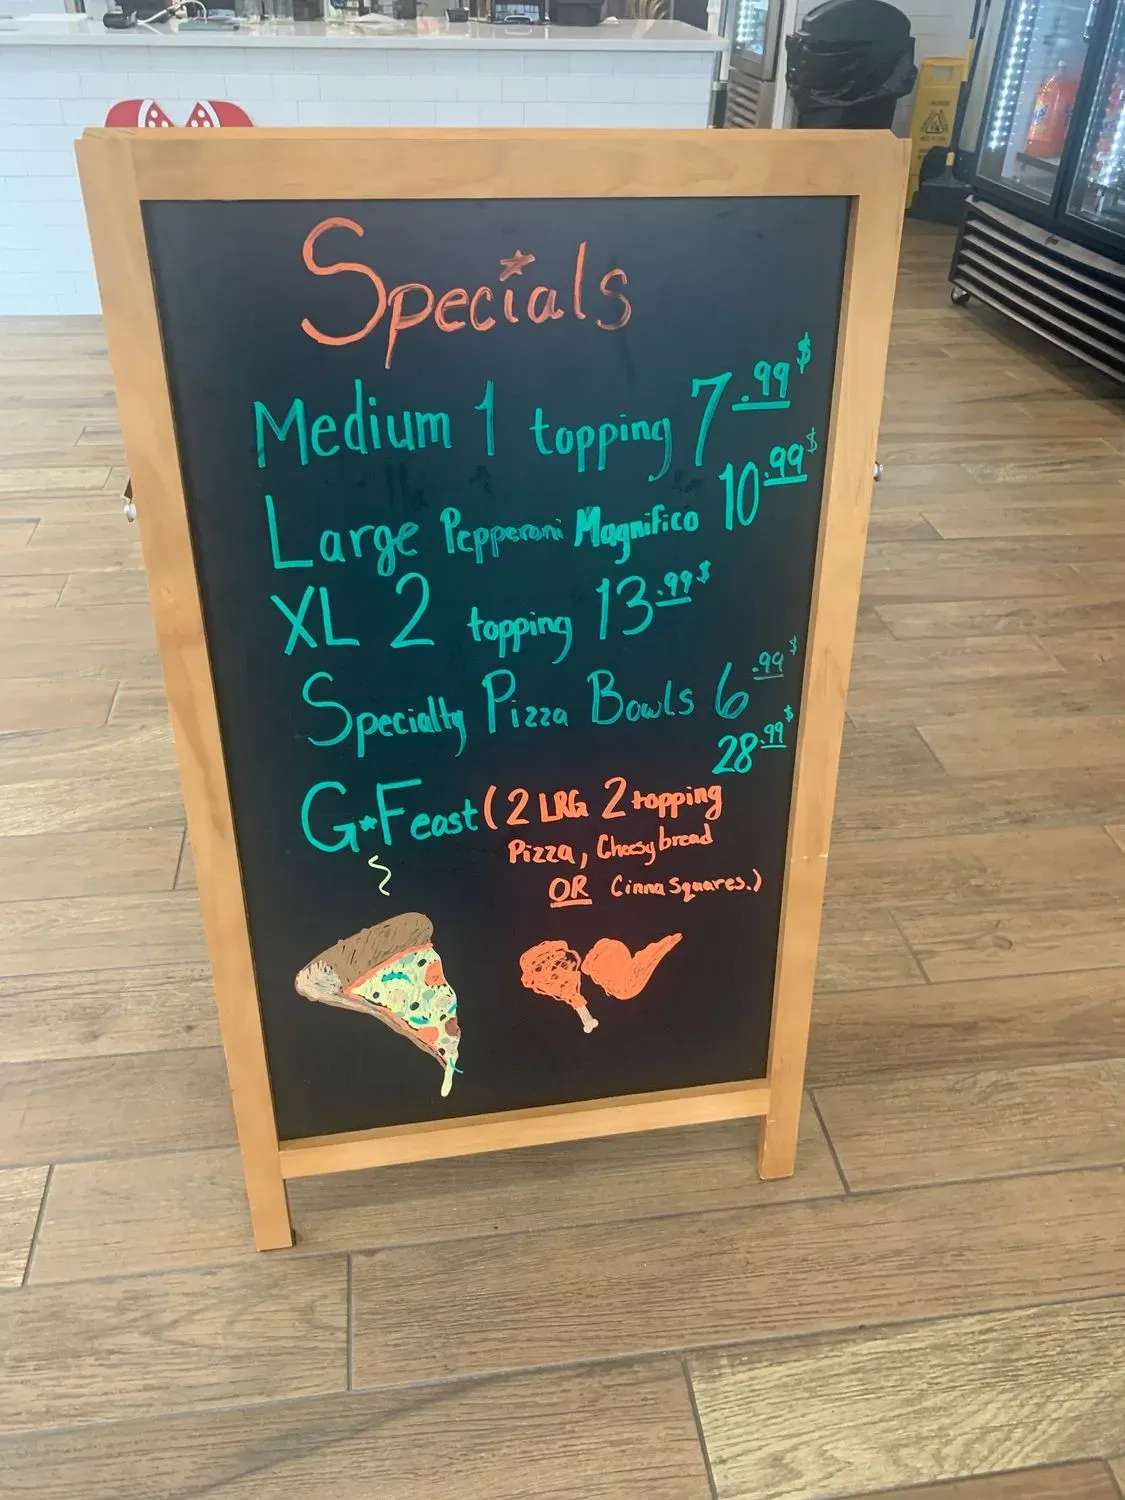 Specials
Medium 1 topping 7.99$
Large Pepperoni Magnifico 10.99$
XL 2 topping 13.99$
Specialty Pizza Bowls 6.99$
28.99$
G*Feast (2 LRG 2 topping
Pizza, Cheesybread
OR Cinna Squares.)
CAUTION